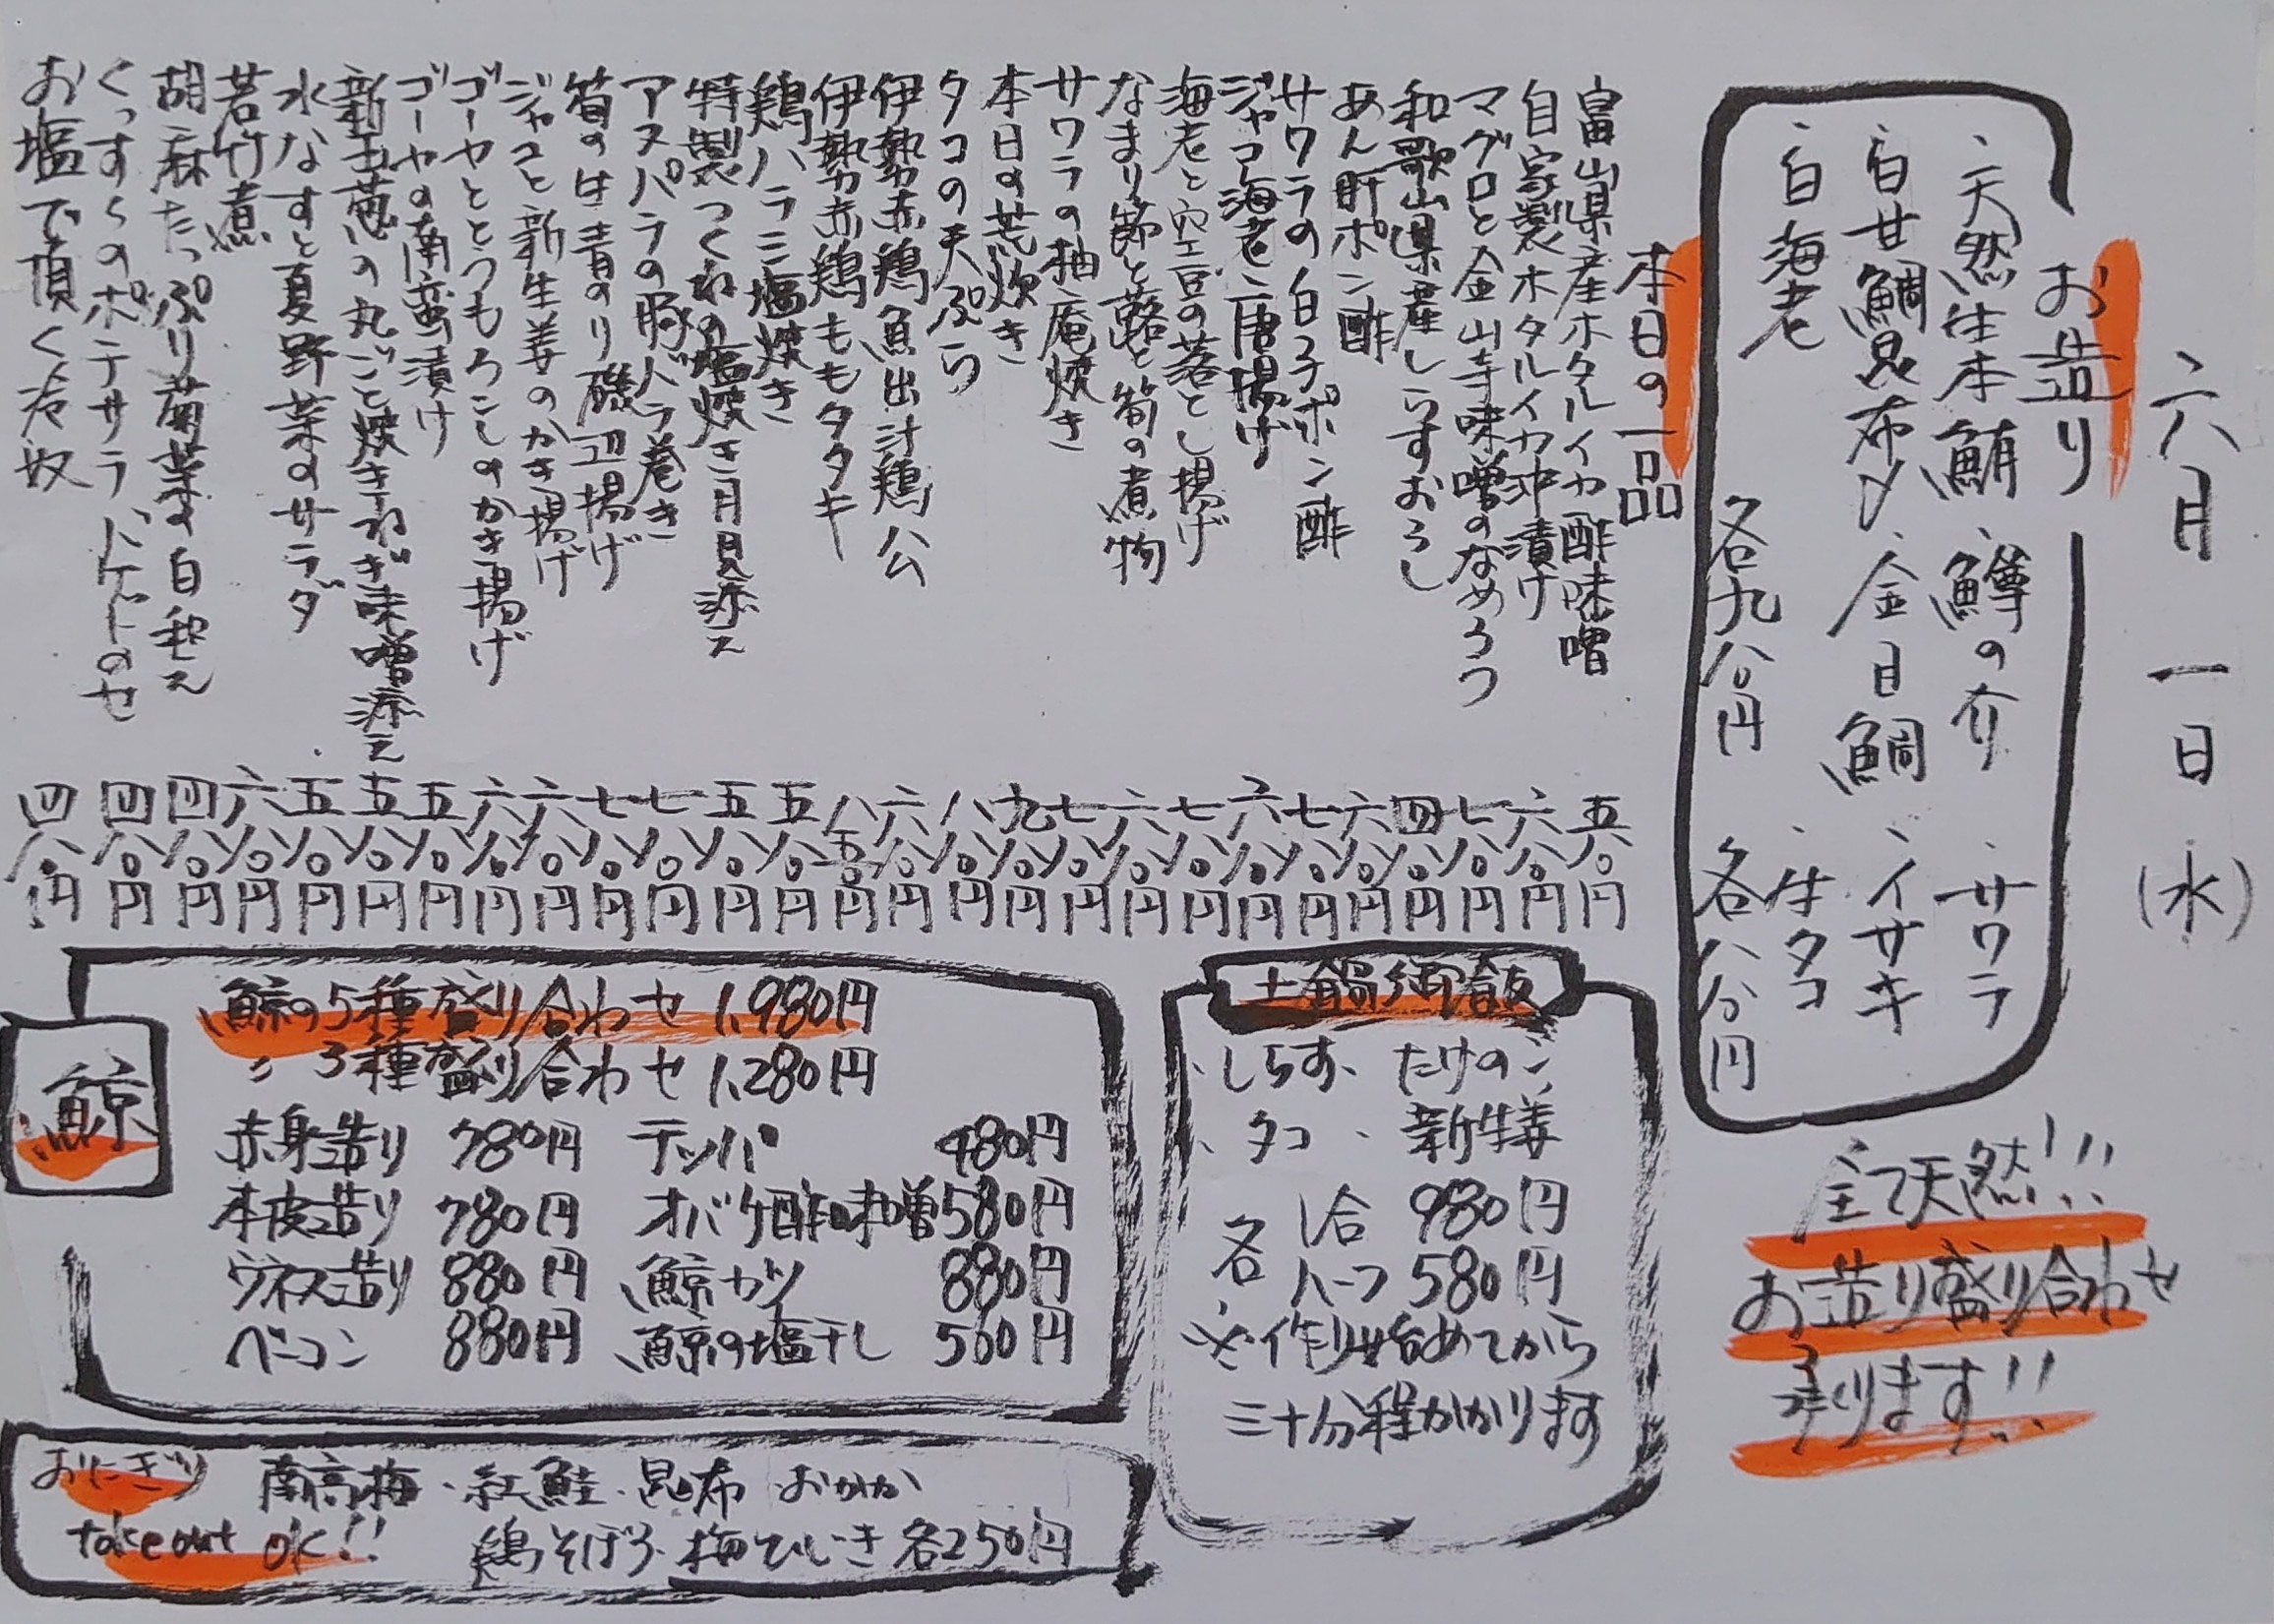 六月一日(水)
お造り
、天然生本鮪、鱒の介、サワラ
、白甘鯛昆布〆、金目鯛、イサキ
、白海老、生タコ
各九八〇円 各八八〇円
全て天然!!!
お造り盛り合わせ
承ります!!
本日の一品
富山県産ホタルイカ酢味噌 五八〇円
自家製ホタルイカ沖漬け 六八〇円
マグロと金山寺味噌のなめろう 七八〇円
和歌山県産しらすおろし 四八〇円
あん肝ポン酢 六八〇円
サワラの白子ポン酢 七八〇円
ジャコ海老二唐揚げ 六八〇円
海老と空豆の落とし揚げ 七八〇円
なまり節と蕗と筍の煮物 六八〇円
サワラの柚庵焼き 七八〇円
本日の荒炊き 九八〇円
タコの天ぷら 八八〇円
伊勢赤鶏魚出汁鶏ハム 六八〇円
伊勢赤鶏ももタタキ 八五〇円
鶏ハラミ塩焼き 五八〇円
特製つくねの塩焼き月見添え 五八〇円
アスパラの豚バラ巻き 七八〇円
筍の生青のり磯辺揚げ 七八〇円
ジャコと新生姜のかき揚げ 六八〇円
ゴーヤととうもろこしのかき揚げ 六八〇円
ゴーヤの南蛮漬け 五八〇円
新玉葱の丸ごと焼きねぎ味噌添え 五八〇円
水なすと夏野菜のサラダ 五八〇円
若竹煮 六八〇円
胡麻たっぷり菊菜の白和え 四八〇円
くっすらのポテサラ バケットのせ 四八〇円
お塩で頂く冷奴 四八〇円
土鍋御飯
、しらす、たけのこ
、タコ、新生姜
各 1合 980円
ハーフ 580円
※作り始めてから
三十分程かかります
鯨
鯨の5種盛り合わせ 1,980円
〃 3種盛り合わせ 1,280円
赤身造り 780円 テッパ 480円
本皮造り 780円 オバケ酢味噌 580円
ウネス造り 880円 鯨カツ 880円
ベーコン 880円 鯨の塩干し 580円
おにぎり 南高梅・紅鮭・昆布 おかか
take out OK!! 鶏そぼろ・梅ひじき 各250円